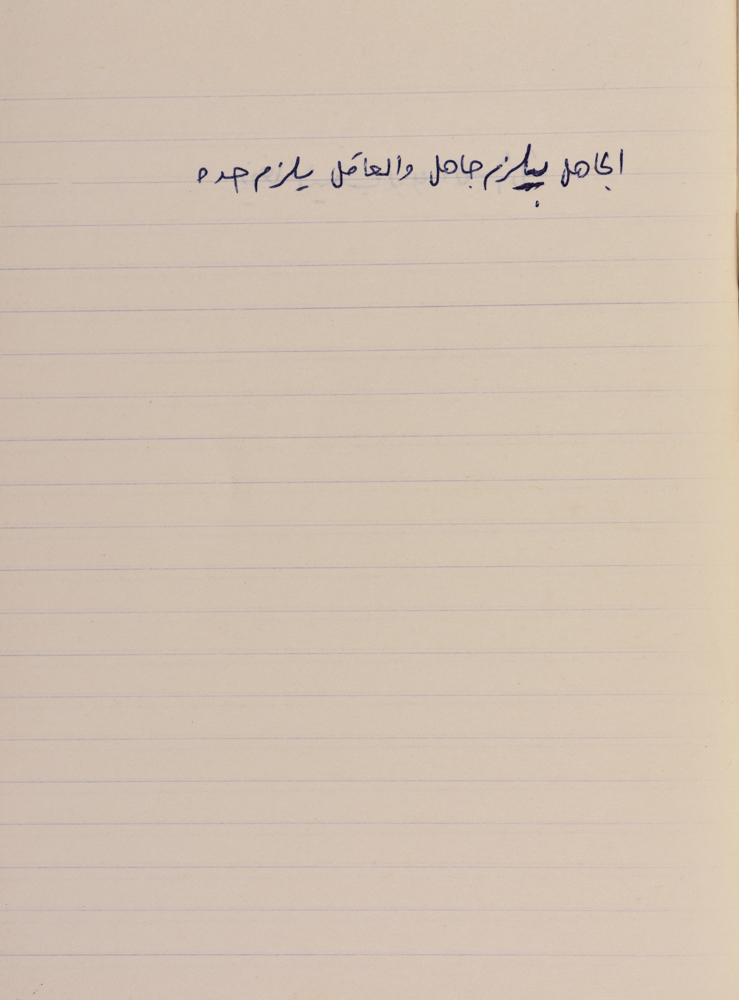 الجاهل بيلزم جاهل والعاقل يلزم حده